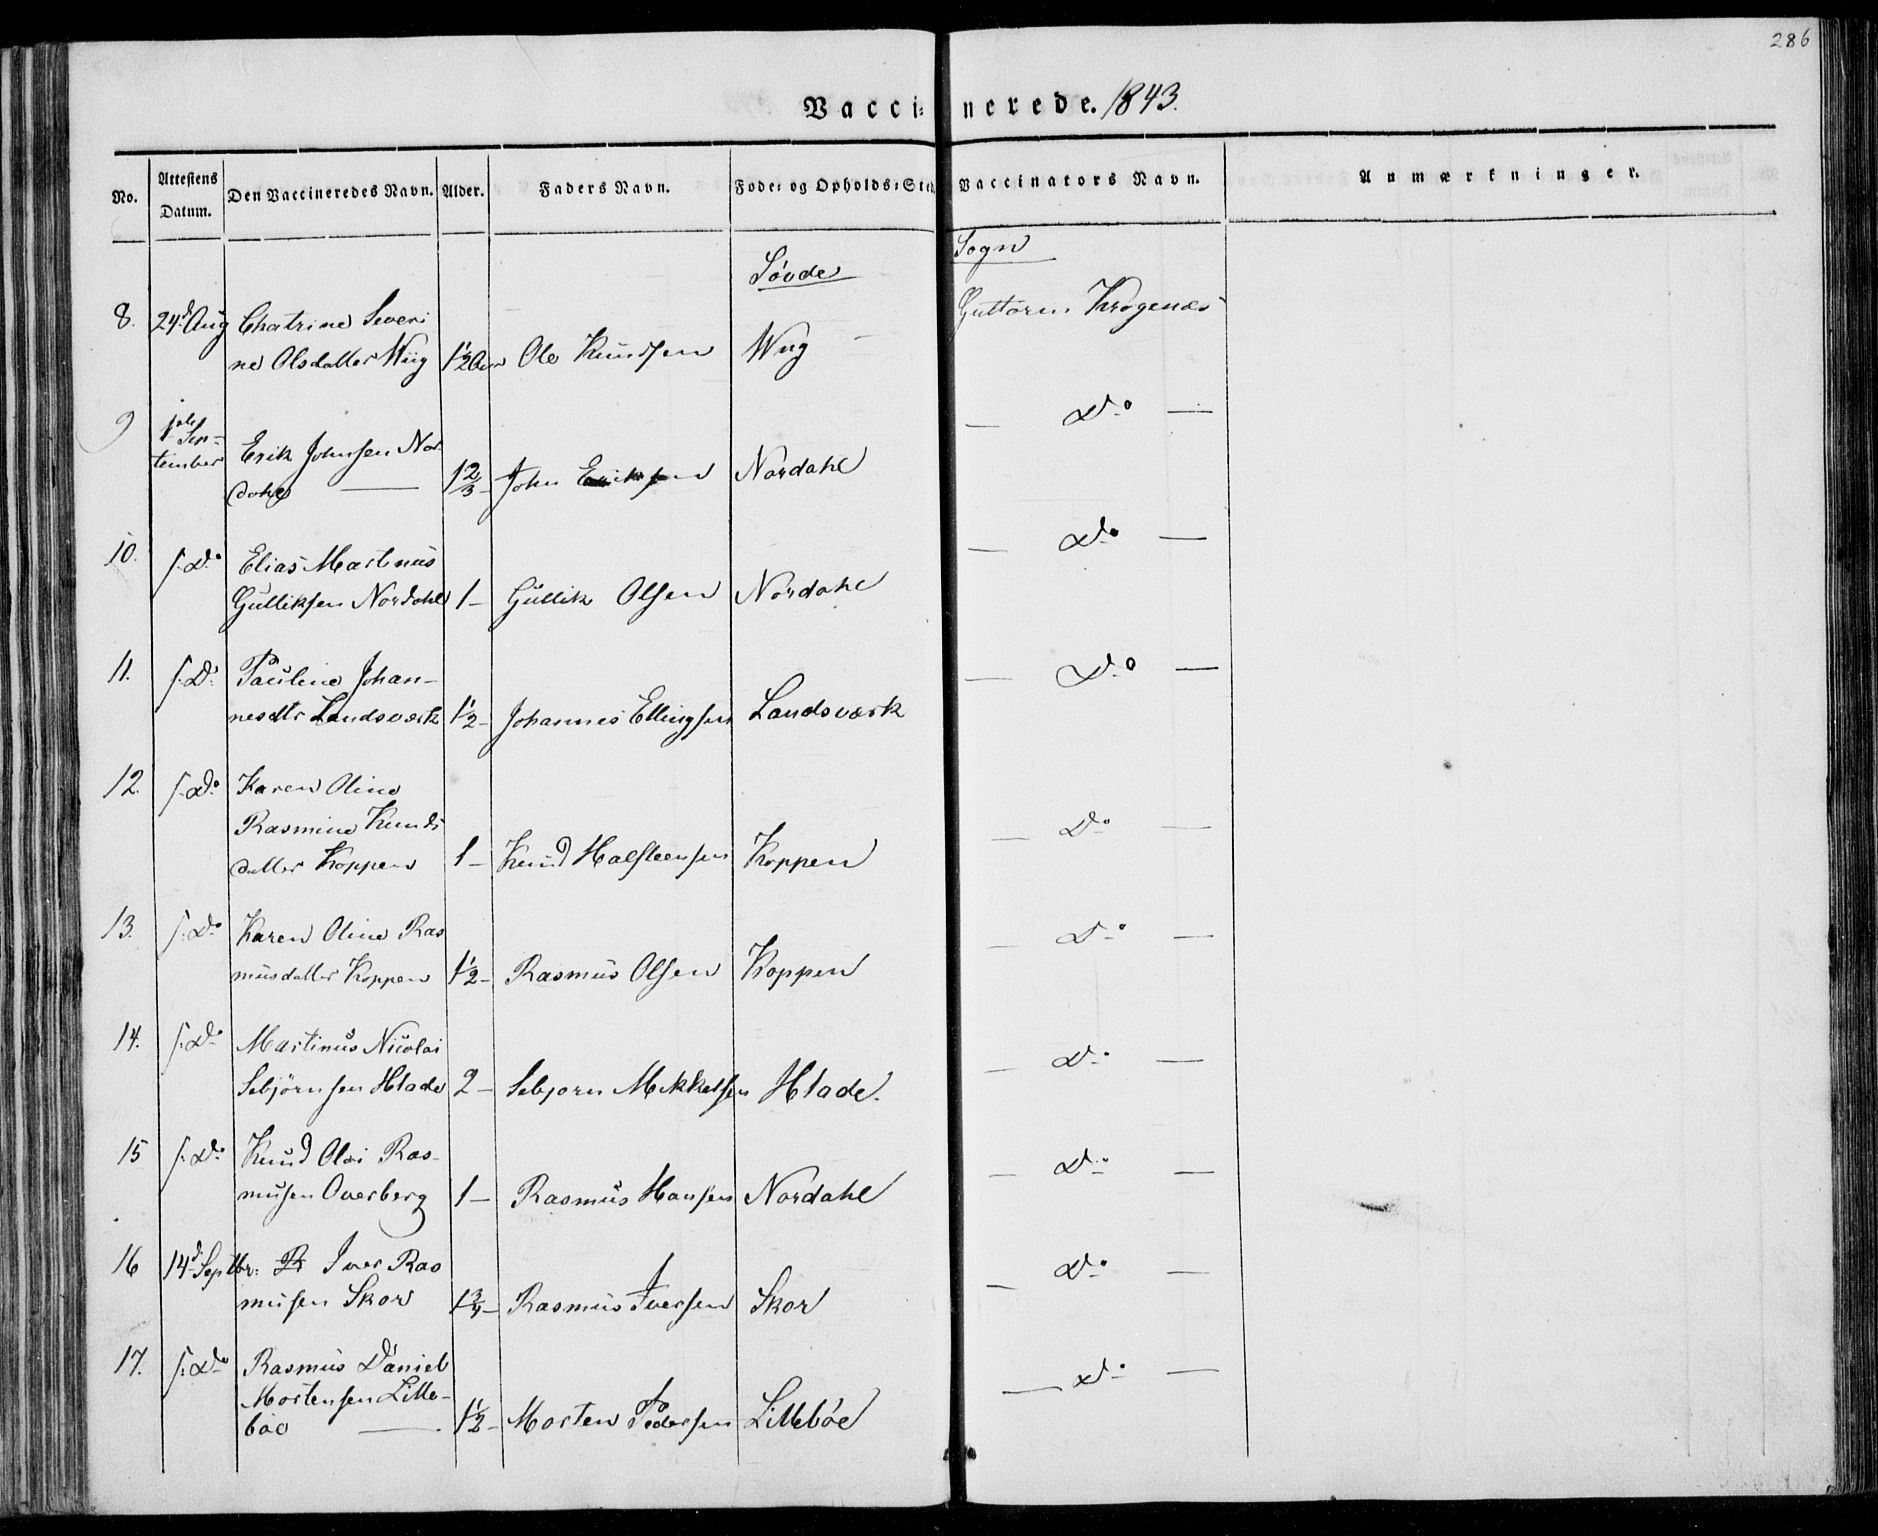 286
Vaccinerede. 1843.
No. Attestens Datum. Den Vaccineredes Navn. Alder. Faders Navn. Føde- og Opholds-Sted. Vaccinators Navn. Anmærkninger.
Søvde Sogn
8. 24d Aug Chatrine Severi Guttorm Krogenæs
ne Olsdatter Wiig 1½ Aar Ole Knudsen Wiig
9 1ste Sep- — Do —
tember Erik Johnsen Nor
dahl — 1 2/3 – John Eriksen Nordahl
10. s. Do Elias Martinus — Do —
Gulliksen Nordahl 1 – Gullik Olsen Nordahl
11. s. Do Pauline Johan- — Do —
nesdtr Landsværk 1½ – Johannes Ellingsen Landsværk
12. s. Do Karen Oline
Rasmine Knuds — Do —
datter Koppen 1 – Knud Halsteensen Koppen
13. s. Do Karen Oline Ras — Do —
musdatter Koppen 1½ – Rasmus Olsen Koppen
14. s. Do Martinus Nicolai — Do —
Sebjørnsen Hlade 2 – Sebjørn Mikkelsen Hlade.
15 s. Do Knud Olai Ras- — Do —
musen Overberg 1 – Rasmus Hansen Nordahl
16 14d Septbr: R Iver Ras — Do —
musen Skor 1¾ – Rasmus Iversen Skor
17. s. Do Rasmus Daniel — Do —
Mortensen Lille-
bøe — 1½ – Morten Pedersen Lillebøe